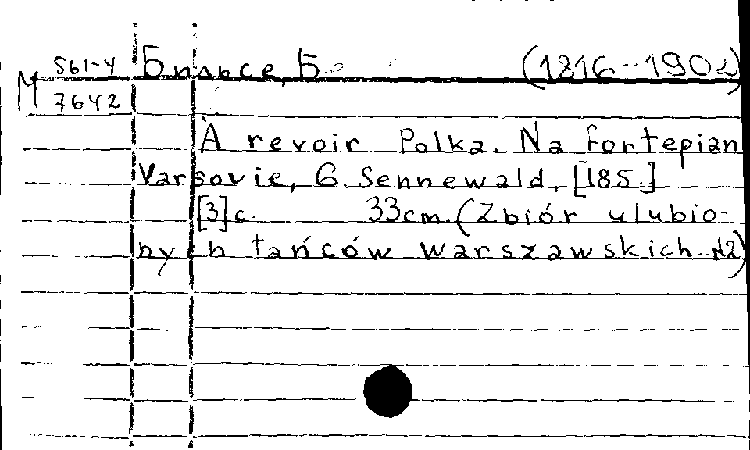 М 561-4 Бильсе, Б. (1816-1902)
7642
A revoir Polka. Na fortepian
Varsovie, G. Sennewald, [185.]
[3] c. 33cm. (Zbiór ulubio-
nych tańców warszawskich. №2)